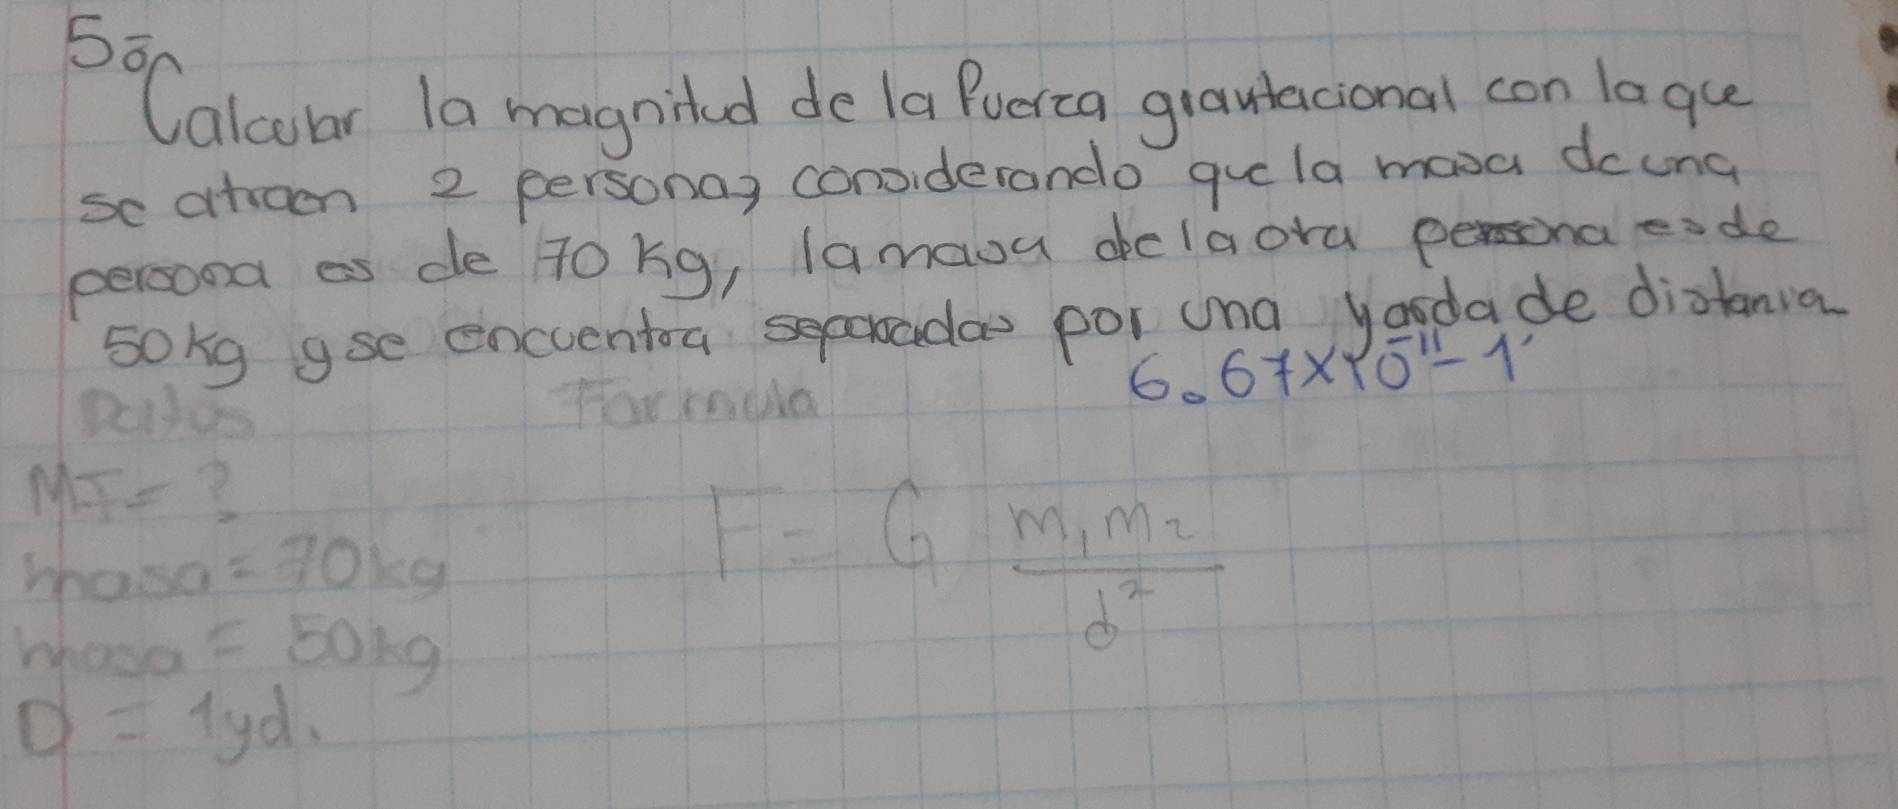 5º
Calcular la magnitud de la fuerza gravitacional con la que
se atraen 2 personas considerando que la masa de una
persona es de 70 kg, la masa de la otra persona es de
50kg y se encuentra separadas por una yarda de distancia
6.67x10⁻¹¹ - 1
Datos Formula
MI = ?
masa = 70kg
masa = 50kg
D = 1yd.
F = G m₁m₂
d²